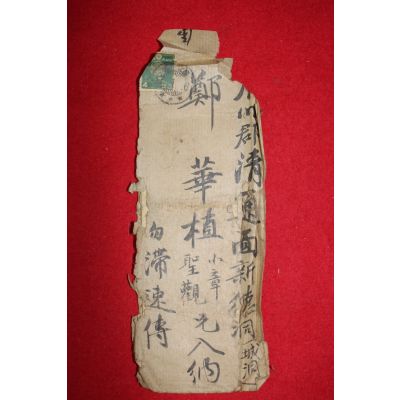 川郡清通面新德洞(城洞)
鄭華植 小章 聖觀 兄入納
勿滯速傳